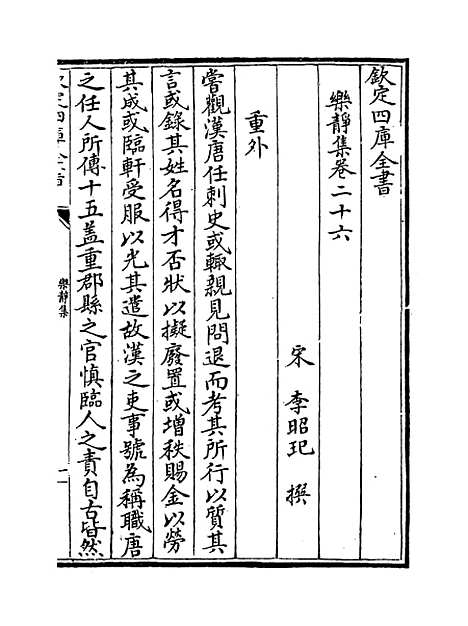 欽定四庫全書
樂靜集卷二十六
宋 李昭玘 撰
重外
嘗觀漢唐任刺史或輙親見問退而考其所行以質其
言或錄其姓名得才否狀以擬廢置或增秩賜金以勞
其成或臨軒受服以光其遣故漢之吏事號為稱職唐
之任人所傳十五葢重郡縣之官慎臨人之責自古皆然
欽定四庫全書
樂靜集